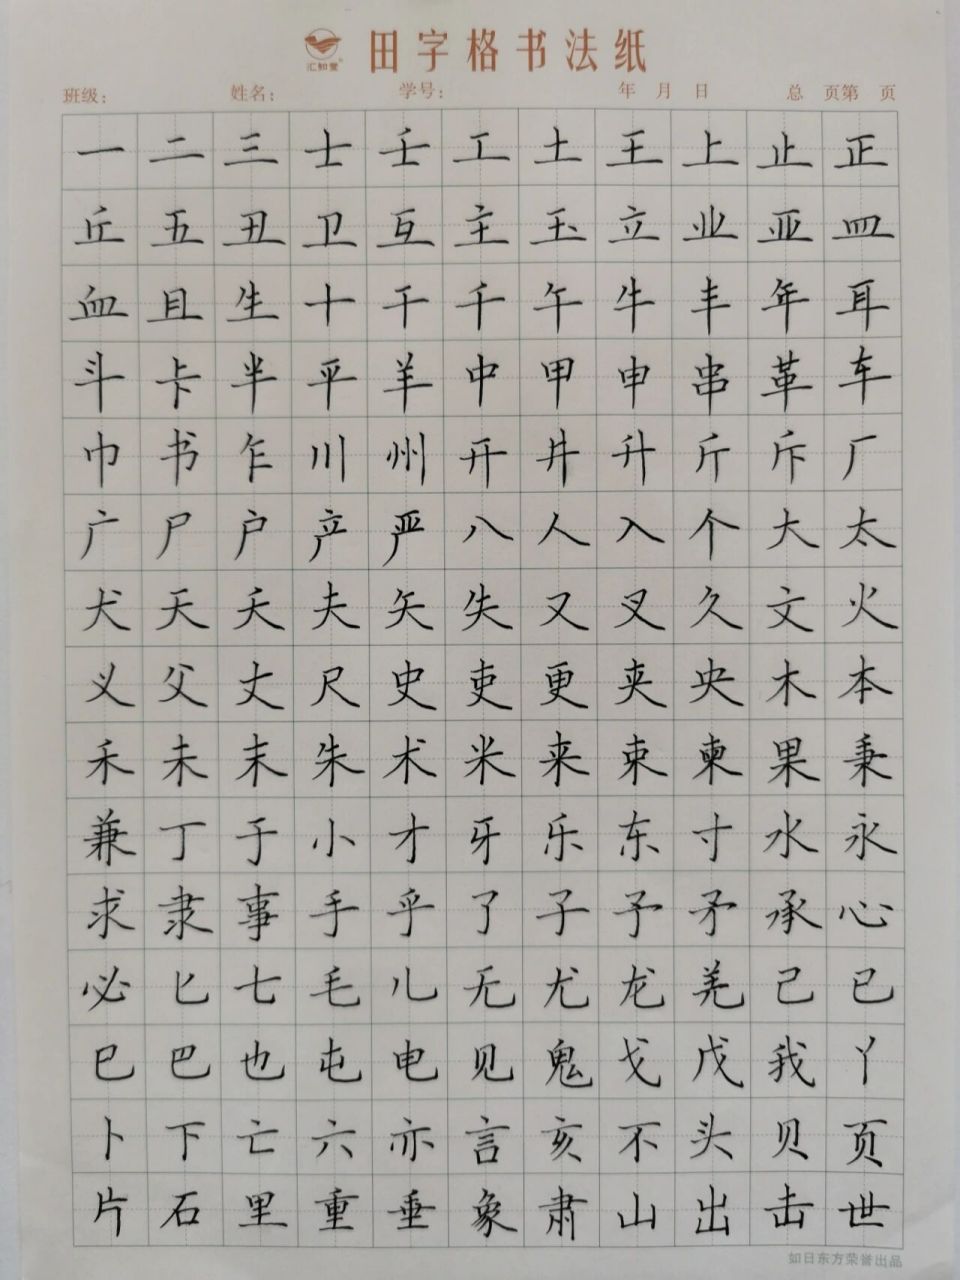 汇知堂 田字格书法纸
班级： 姓名： 学号： 年 月 日 总 页第 页
一二三士壬工土王上止正
丘五丑卫互主玉立业亚皿
血且生十干千午牛丰年耳
斗卡半平羊中甲申串革车
巾书乍川州开井升斤斥厂
广尸户产严八人入个大太
犬天夭夫矢失又叉久文火
义父丈尺史吏更夹央木本
禾未末朱术米来束柬果秉
兼丁于小才牙乐东寸水永
求隶事手乎了子予矛承心
必匕七毛儿无尤龙羌己已
巳巴也屯电见鬼戈戊我丫
卜下亡六亦言亥不头贝页
片石里重垂象肃山出击世
如日东方荣誉出品